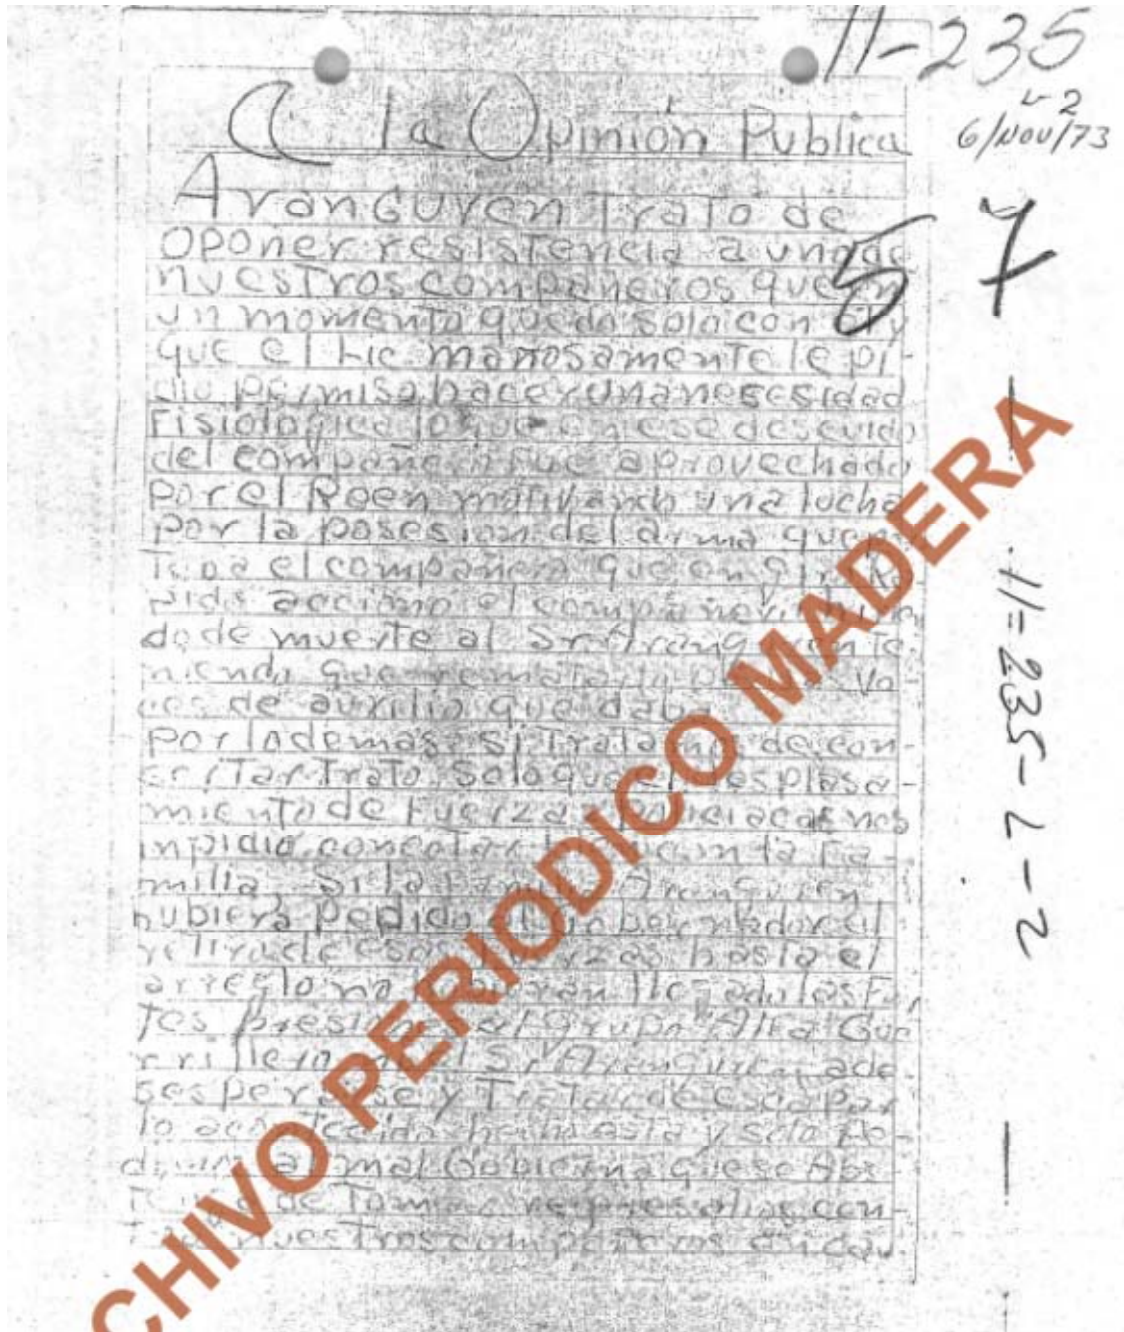 11-235
L-2
6/NOV/73
A la Opinión Publica
57
Aranguren Trato de
oponer resistencia a uno de
nuestros compañeros que en
un momento quedo solo con el y
que el Lic mañosamente le pi-
dio permiso hacer una nesesidad
Fisiologica lo que en ese descuido
del compañero fue aprovechado
por el Roen motivando una lucha
por la posesion del arma que
el compañero que en
accióno el compañero
do de muerte al Sr Aranguren te-
niendo que rematarlo vo-
ces de auxilio que daba
por lo demas si Tratamos de con-
certar Trato solo que el desplasa-
miento de Fuerzas policiacas nos
inpidio concertarlo con la Fa-
milia. Si la Familia Aranguren
hubiera pedido al Gobernador el
retiro de esas fuerzas hasta el
arreglo no hubieran llegado las Fuer
tes presiones al Grupo "Alta Gue
rrillero" Sr Aranguren a de
sesperarse y Tratar de escapar
lo acontecido hecho esta y solo pe-
dimos al mal Gobierno que se Abs
Tenga de Tomar represalias con-
tra nuestros compañeros
11-235-L-2
CHIVO PERIODICO MADERA